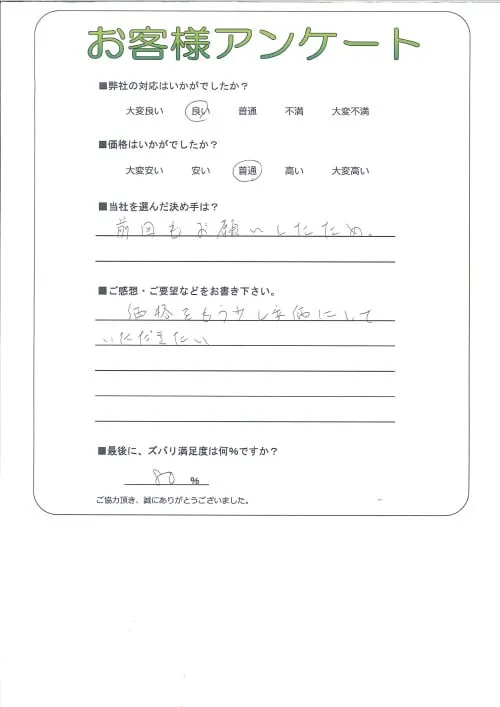 お客様アンケート
■弊社の対応はいかがでしたか？
大変良い 良い 普通 不満 大変不満
■価格はいかがでしたか？
大変安い 安い 普通 高い 大変高い
■当社を選んだ決め手は？
前回もお願いしたため。
■ご感想・ご要望などをお書き下さい。
価格をもう少し安価にして
いただきたい
■最後に、ズバリ満足度は何％ですか？
80 ％
ご協力頂き、誠にありがとうございました。